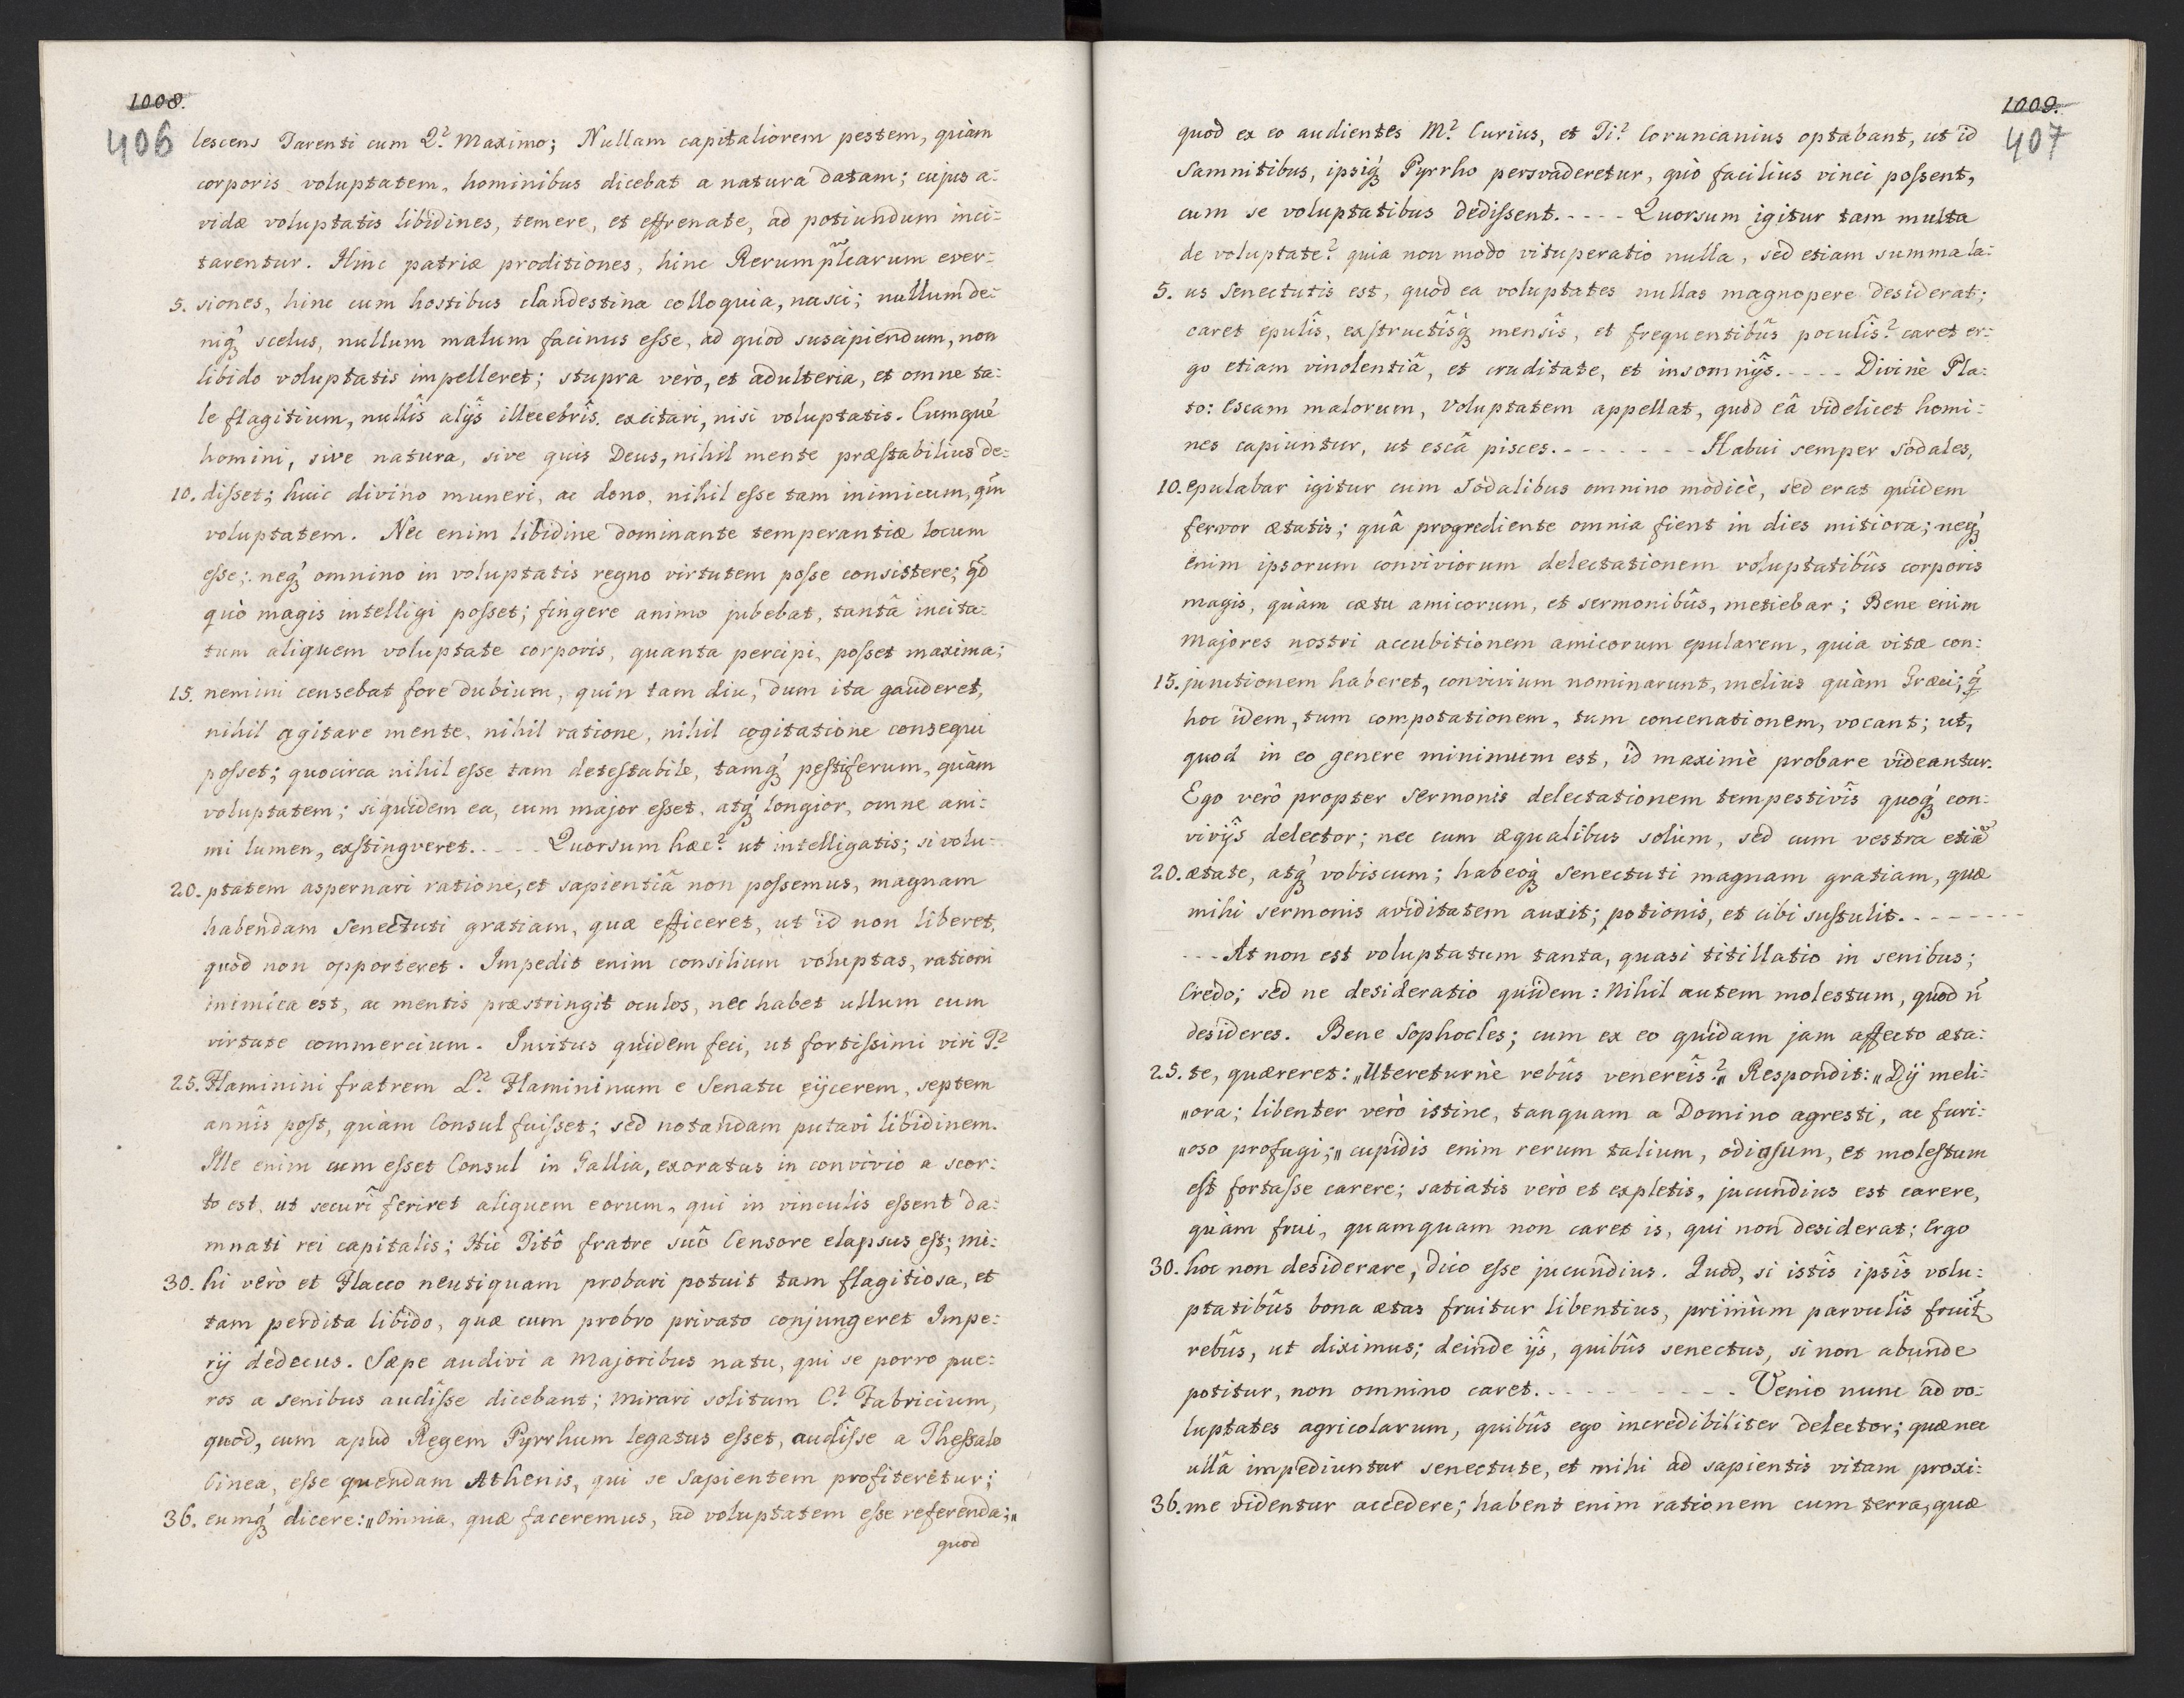 1008.
406
lescens Tarenti cum Q.² Maximo; Nullam capitaliorem pestem, quàm
corporis voluptatem, hominibus dicebat a natura datam; cujus a=
vidæ voluptatis libidines, temere, et effrenate, ad potiundum inci=
tarentur. Hinc patriæ proditiones, hinc Rerumplicarum ever=
5. siones, hinc cum hostibus clandestina colloquia, nasci; nullum de=
niq́ scelus, nullum malum facinus esse, ad quod suscipiendum, non
libido voluptatis impelleret; stupra verò, et adulteria, et omne ta=
le flagitium, nullîs alijs illecebrîs excitari, nisi voluptatis. Cumqué
homini, sive natura, sive quis Deus, nihil mente præstabilius de=
10. disset; huic divino muneri, ac dono, nihil esse tam inimicum, qm̃
voluptatem. Nec enim libidine dominante temperantiæ locum
esse; neq́ omnino in voluptatis regno virtutem posse consistere; qd̃
quò magis intelligi posset; fingere animo jubebat, tantâ incita=
tum aliquem voluptate corporis, quanta percipi, posset maxima;
15. nemini censebat fore dubium, quin tam diu, dum ita gauderet,
nihil agitare mente, nihil ratione, nihil cogitatione consequi
posset; quocirca nihil esse tam detestabile, tamq́ pestiferum, quàm
voluptatem; siquidem ea, cum major esset, atq́ longior, omne ani=
mi lumen, exstingveret. - - - - Quorsum hæc? ut intelligatis; si volu=
20. ptatem aspernari ratione, et sapientiâ non possemus, magnam
habendam Senectuti gratiam, quæ efficeret, ut id non liberet,
quod non opporteret. Impedit enim consilium voluptas, rationi
inimica est, ac mentis præstringit oculos, nec habet ullum cum
virtute commercium. Invitus quidem feci, ut fortissimi viri T.²
25. Flaminini fratrem L.² Flamininum e Senatu eijcerem, septem
annîs post, quàm Consul fuisset; sed notandam putavi libidinem.
Ille enim cum esset Consul in Gallia, exoratus in convivio a scor=
to est, ut securî feriret aliquem eorum, qui in vinculis essent da=
mnati rei capitalis; Hic Titô fratre suô Censore elapsus est; mi=
30. hi verò et Flacco neutiquam probari potuit tam flagitiosa, et
tam perdita libido, quæ cum probro privato conjungeret Impe=
rij dedecus. Sæpe audivi a Majoribus natu, qui se porro pue=
ros a senibus audîsse dicebant; mirari solitum C.² Fabricium,
quod, cum apud Regem Pyrrhum legatus esset, audîsse a Thessalo
Cinea, esse quendam Athenis, qui se Sapientem profiteretur;
36. eumq́ dicere: „Omnia, quæ faceremus, ad voluptatem esse referenda;„
quod
1009.
407
quod ex eo audientes M.² Curius, et Ti.² Coruncanius optabant, ut id
Samnitibus, ipsiq́ Pyrrho persvaderetur, quò facilius vinci possent,
cum se voluptatibus dedissent. - - - - Quorsum igitur tam multa
de voluptate? quia non modo vituperatio nulla, sed etiam summa la=
5. us Senectutis est, quod ea voluptates nullas magnopere desiderat;
caret epulîs, exstructîsq́ mensîs, et frequentibûs poculîs? caret er=
go etiam vinolentiâ, et cruditate, et insomnijs. - - - - Divinè Pla=
to: Escam malorum, Voluptatem appellat, quod eâ videlicet homi=
nes capiuntur, ut escâ pisces. - - - - - - - Habui semper Sodales,
10. epulabar igitur cum Sodalibus omnino modicè, sed erat quidem
fervor ætatis; quâ progrediente omnia fient in dies mitiora; neq́
enim ipsorum conviviorum delectationem voluptatibûs corporis
magis, quàm cætu amicorum, et sermonibûs, metiebar; Bene enim
Majores nostri accubitionem amicorum epularem, quia vitæ con=
15. junctionem haberet, convivium nominarunt, melius quàm Græci; q̃
hoc idem, tum compotationem, tum concenationem, vocant; ut,
quod in eo genere minimum est, id maximè probare videantur.
Ego verò propter Sermonis delectationem tempestivîs quoq́ con=
vivijs delector; nec cum æqualibus solùm, sed cum vestra etiã
20. ætate, atq́ vobiscum; habeoq́ Senectuti magnam gratiam, quæ
mihi sermonis aviditatem auxit; potionis, et cibi sustulit. - - - - - - -
- - - At non est voluptatum tanta, quasi titillatio in senibus;
Credo; sed ne desideratio quidem: Nihil autem molestum, quod ñ
desideres. Bene Sophocles; cum ex eo quidam jam affecto æta=
25. te, quæreret: „Utereturnè rebûs venereîs?„ Respondit: „Dij meli=
„ora; libenter verò istinc, tanquam a Domino agresti, ac furi=
„oso profugi;„ cupidis enim rerum talium, odiosum, et molestum
est fortasse carere; satiatis verò et expletis, jucundius est carere,
quàm frui, quamquam non caret is, qui non desiderat; Ergo
30. hoc non desiderare, dico esse jucundius. Quod, si istîs ipsîs volu=
ptatibûs bona ætas fruitur libentius, primùm parvulîs fruit̃
rebûs, ut diximus; deinde ijs, quibûs senectus, si non abunde
potitur, non omnino caret. - - - - - - - - - Venio nunc ad vo=
luptates agricolarum, quibûs ego incredibiliter delector; quæ nec
ullâ impediuntur senectute, et mihi ad sapientis vitam proxi=
36. me videntur accedere; habent enim rationem cum terra, quæ